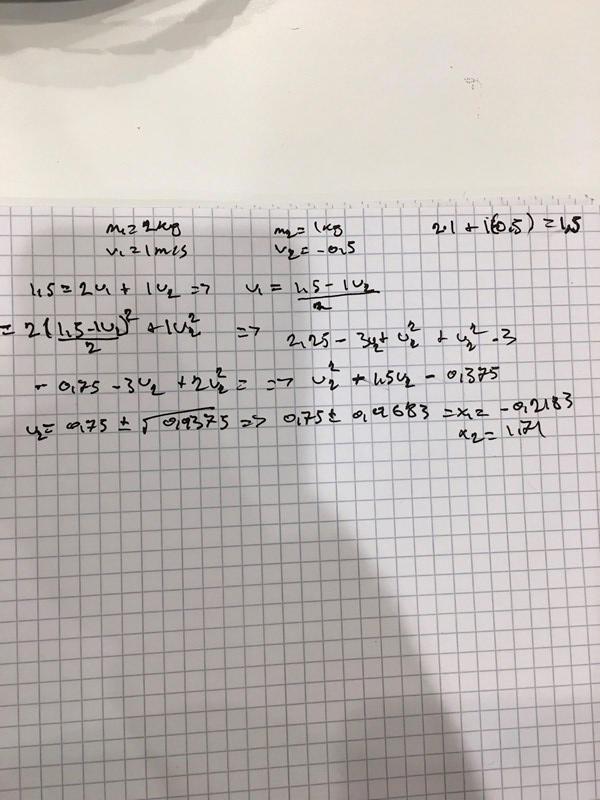 m₁=2kg m₂=1kg 2·1 + 1(-0,5) = 1,5
v₁=1m/s v₂=-0,5
1,5 = 2u₁ + 1u₂ => u₁ = (1,5 - 1u₂)/2
= 2((1,5-1u₂)/2)² + 1u₂² => 2,25 - 3u₂ + u₂² + u₂² · 3
- 0,75 - 3u₂ + 2u₂² = => u₂² + 1,5u₂ - 0,375
u₂ = 0,75 ± √0,9375 => 0,75 ± 0,9683 = x₁ = -0,2183
x₂ = 1,71